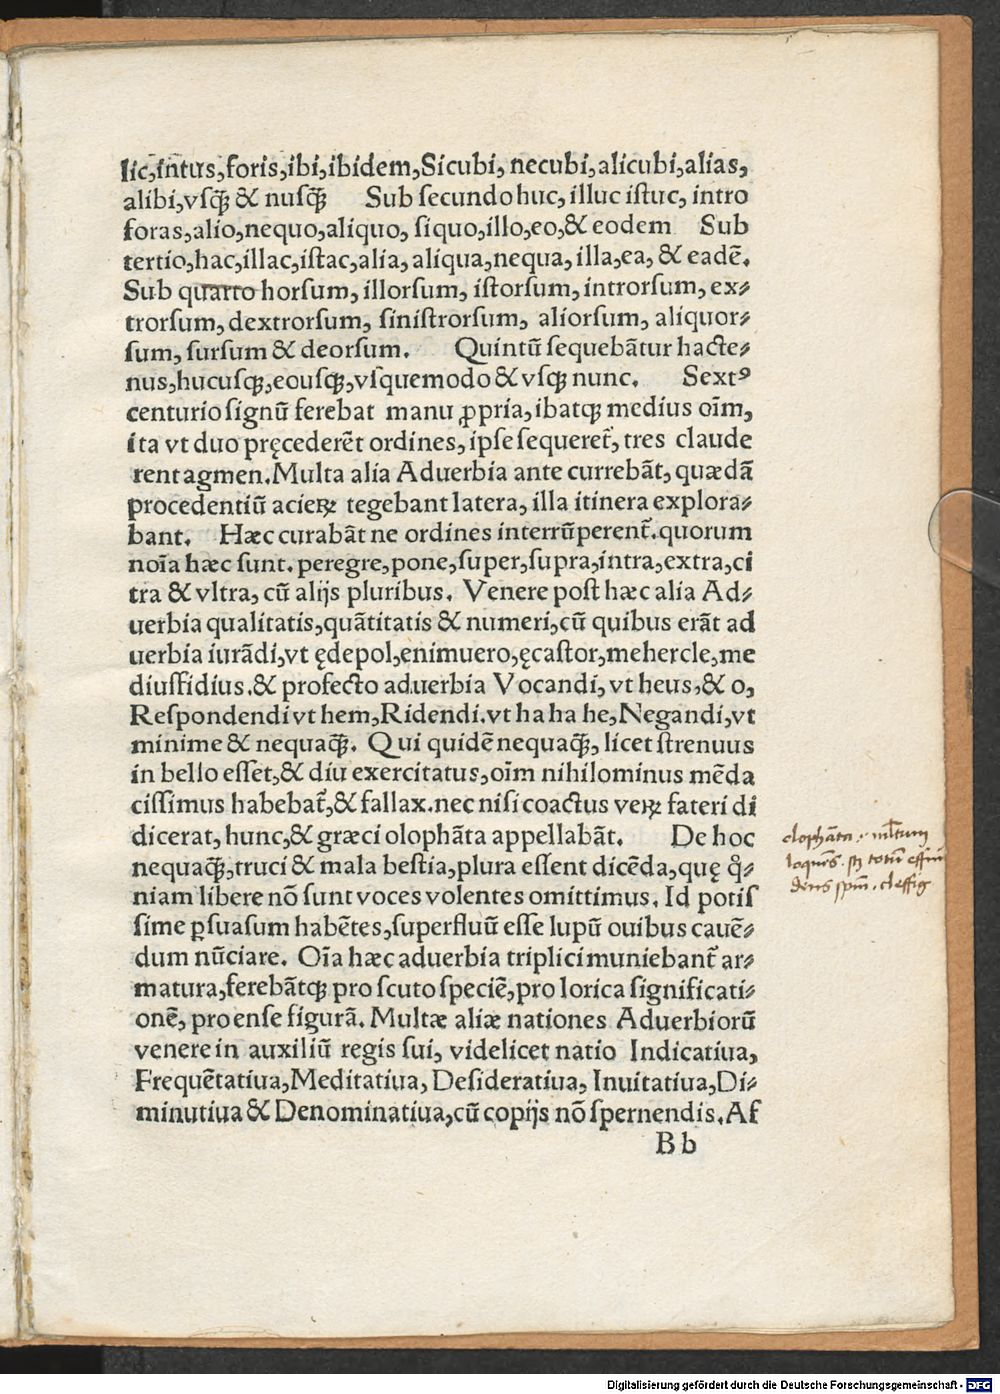 lic,intus,foris,ibi,ibidem,Sicubi,necubi,alicubi,alias,
alibi,vſqꝫ̃ & nuſqꝫ̃ Sub ſecundo huc, illuc iſtuc, intro
foras,alio,nequo,aliquo, ſiquo,illo,eo,& eodem Sub
tertio,hac,illac,iſtac,alia,aliqua,nequa,illa,ea, & eadẽ.
Sub quarto horſum, illorſum, iſtorſum, introrſum, ex⸗
trorſum, dextrorſum, ſiniſtrorſum, aliorſum, aliquor⸗
ſum, ſurſum & deorſum. Quintũ ſequebãtur hacte⸗
nus,hucuſqꝫ,eouſqꝫ,vſquemodo & vſqꝫ nunc. Sextꝰ
centurio ſignũ ferebat manu ꝓpria,ibatqꝫ medius oĩm,
ita vt duo pręcederẽt ordines, ipſe ſequeret̃, tres claude
rent agmen.Multa alia Aduerbia ante currebãt, quædã
procedentiũ acieꝝ tegebant latera, illa itinera explora⸗
bant. Hæc curabãt ne ordines interrũperent̃.quorum
noĩa hæc ſunt. peregre,pone,ſuper,ſupra,intra,extra,ci
tra & vltra, cũ alijs pluribus. Venere poſt hæc alia Ad⸗
uerbia qualitatis,quãtitatis & numeri,cũ quibus erãt ad
uerbia iurãdi,vt ędepol,enimuero,ęcaſtor,mehercle,me
diuſfidius.& profecto aduerbia Vocandi, vt heus,& o,
Reſpondendi vt hem,Ridendi.vt ha ha he,Negandi,vt
minime & nequaqꝫ̃. Qui quidẽ nequaqꝫ̃, licet ſtrenuus
in bello eſſet,& diu exercitatus,oĩm nihilominus mẽda
ciſſimus habebat̃,& fallax.nec niſi coactus veꝝ fateri di
dicerat, hunc,& græci olophãta appellabãt. De hoc
nequaqꝫ̃,truci & mala beſtia,plura eſſent dicẽda,quę qͦ̃⸗
niam libere nõ ſunt voces volentes omittimus. Id potiſ
ſime ꝑſuaſum habẽtes,ſuperfluũ eſſe lupũ ouibus cauẽ⸗
dum nũciare. Oĩa hæc aduerbia triplici muniebant̃ ar⸗
matura,ferebãtqꝫ pro ſcuto ſpeciẽ,pro lorica ſignificati⸗
onẽ, pro enſe figurã. Multæ aliæ nationes Aduerbiorũ
venere in auxiliũ regis ſui, videlicet natio Indicatiua,
Frequẽtatiua,Meditatiua, Deſideratiua, Inuitatiua,Di⸗
minutiua & Denominatiua,cũ copijs nõ ſpernendis.Aſ
B b
olophãta
loquẽs totũ
Digitalisierung gefördert durch die Deutsche Forschungsgemeinschaft - DFG